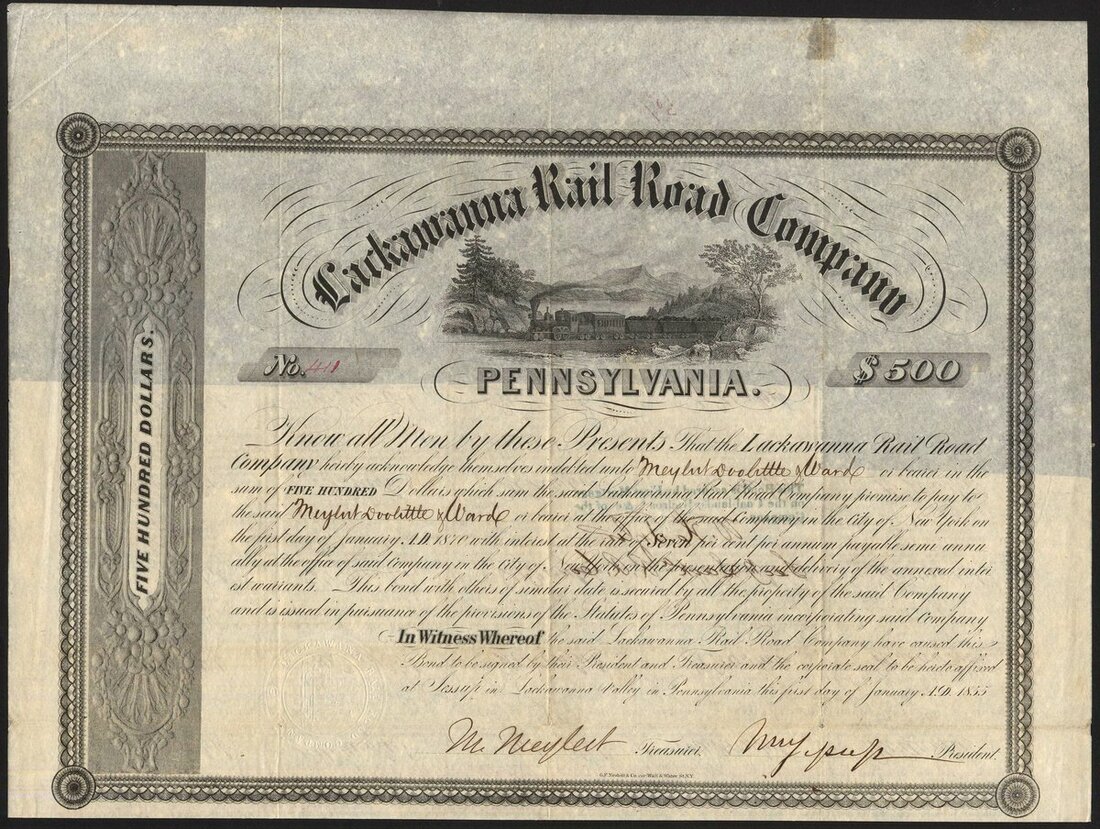 Lackawanna Rail Road Company
No. 411
$500
PENNSYLVANIA.
FIVE HUNDRED DOLLARS.
Know all Men by these Presents That the Lackawanna Rail Road
Company hereby acknowledge themselves indebted unto Meylert Doolittle & Ward or bearer in the
sum of FIVE HUNDRED Dollars which sum the said Lackawanna Rail Road Company promise to pay to
the said Meylert Doolittle & Ward or bearer at the office of the said Company in the City of New York on
the first day of January A.D. 1870 with interest at the rate of Seven per cent per annum payable semi annu
ally at the office of said Company in the City of on the presentation and delivery of the annexed inter
est warrants. This bond with others of similar date is secured by all the property of the said Company
and is issued in pursuance of the provisions of the Statutes of Pennsylvania incorporating said Company
In Witness Whereof the said Lackawanna Rail Road Company have caused this
Bond to be signed by their President and Treasurer and the corporate seal to be hereto affixed
at Jessup in Lackawanna Valley in Pennsylvania this first day of January A.D. 1855
M. Meylert Treasurer. Wm Jessup President.
G.F. Nesbitt & Co. cor. Wall & Water St. N.Y.